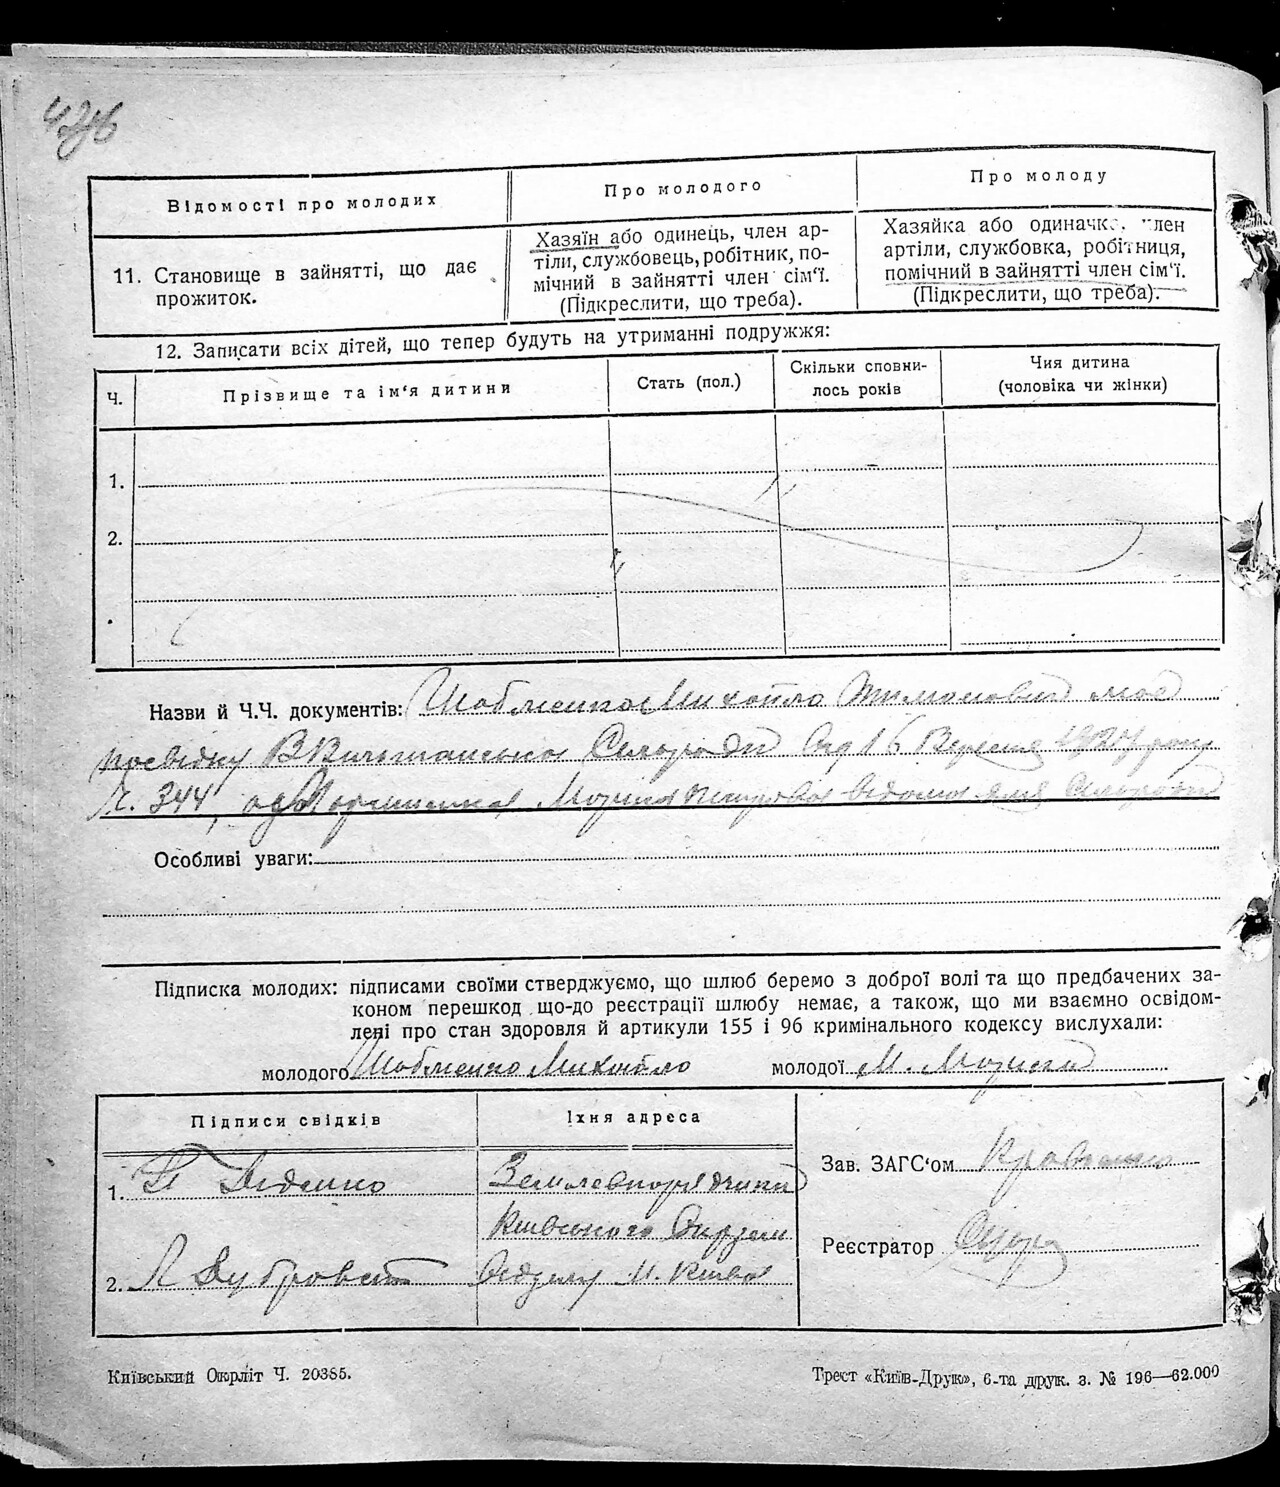 Відомості про молодих
Про молодого
Про молоду
11. Становище в зайнятті, що дає
прожиток.
Хазяїн або одинець, член ар-
тіли, службовець, робітник, по-
мічний в зайнятті член сім'ї.
(Підкреслити, що треба).
Хазяйка або одиначка, член
артіли, службовка, робітниця,
помічний в зайнятті член сім'ї.
(Підкреслити, що треба).
12. Записати всіх дітей, що тепер будуть на утриманні подружжя:
Ч.
Прізвище та ім'я дитини
Стать (пол.)
Скільки сповни-
лось років
Чия дитина
(чоловіка чи жінки)
1.
2.
Назви й Ч.Ч. документів: Михайло має
посвідку Сельради від 16 Вересня 1927 року
Ч. 344, відома для Сельради
Особливі уваги:
Підписка молодих: підписами своїми стверджуємо, що шлюб беремо з доброї волі та що предбачених за-
коном перешкод що-до реєстрації шлюбу немає, а також, що ми взаємно освідом-
лені про стан здоровля й артикули 155 і 96 кримінального кодексу вислухали:
молодого Михайло молодої М.
Підписи свідків
Їхня адреса
1. Діденко
Землевпорядчики
Київського
2. Л Дубровський
відділу м. Київа
Зав. ЗАГС'ом Кравченко
Реєстратор
Київський Окрліт Ч. 20385.
Трест «Київ-Друк», 6-та друк. з. № 196—62.000